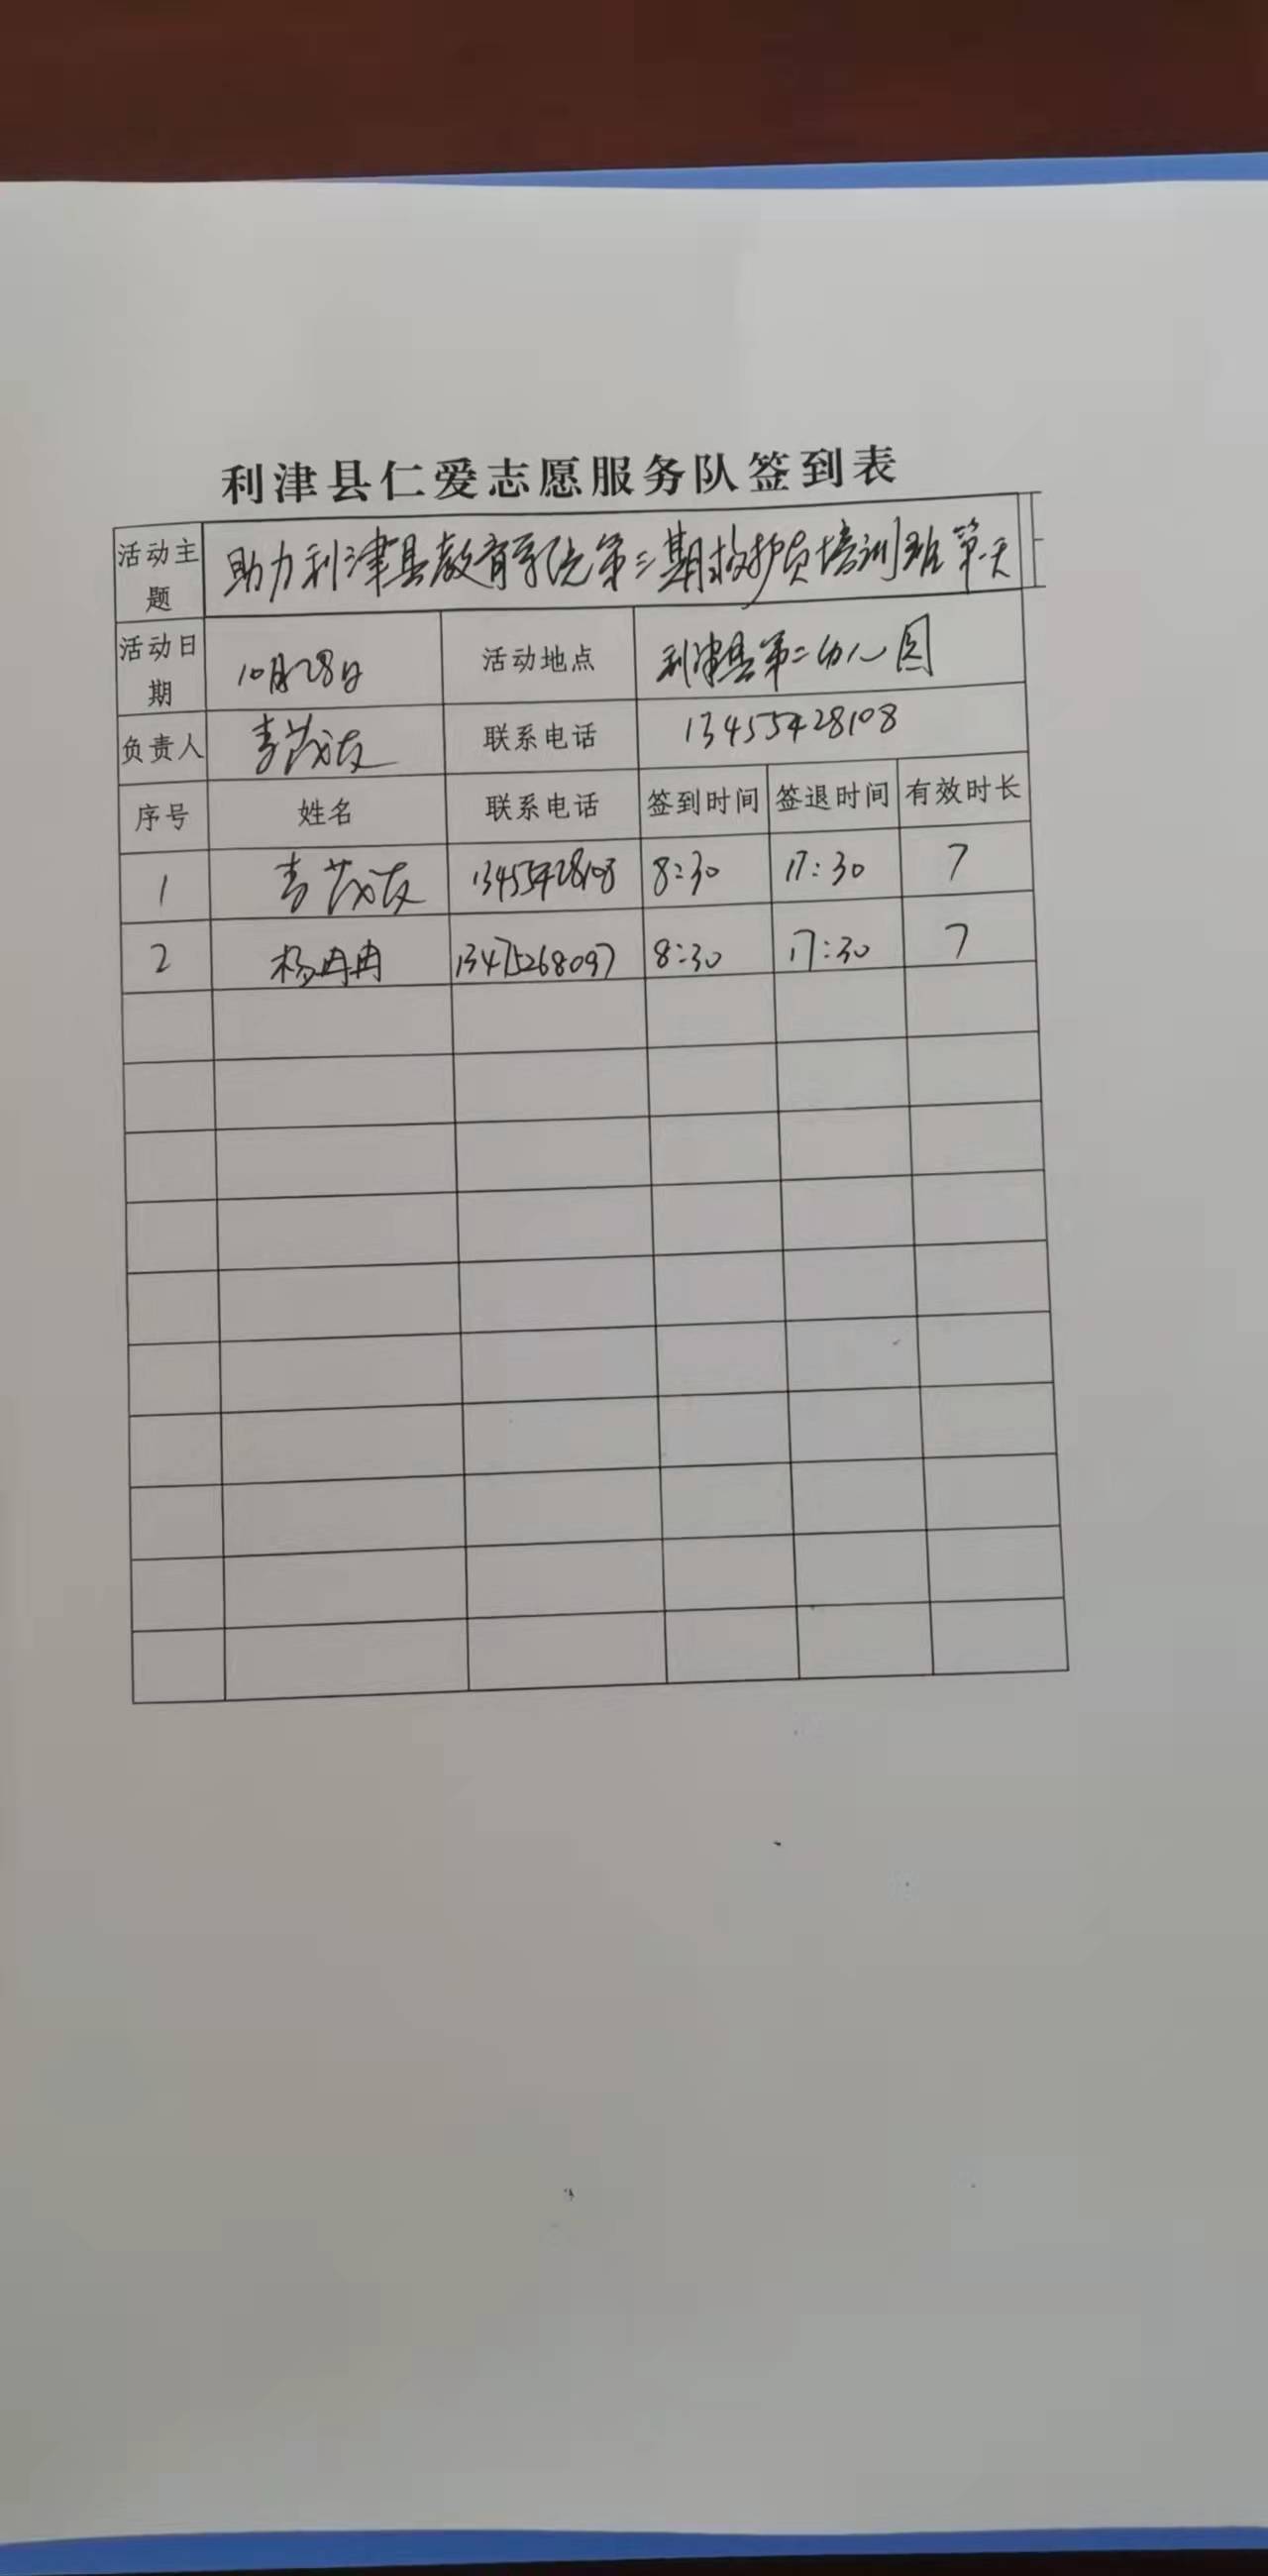 利津县仁爱志愿服务队签到表
活动主题 助力利津县教育系统第三期救护员培训班第一天
活动日期 10月28日 活动地点 利津县第二幼儿园
负责人 联系电话 13455428108
序号 姓名 联系电话 签到时间 签退时间 有效时长
1 13455428108 8:30 17:30 7
2 杨冉冉 13475268097 8:30 17:30 7